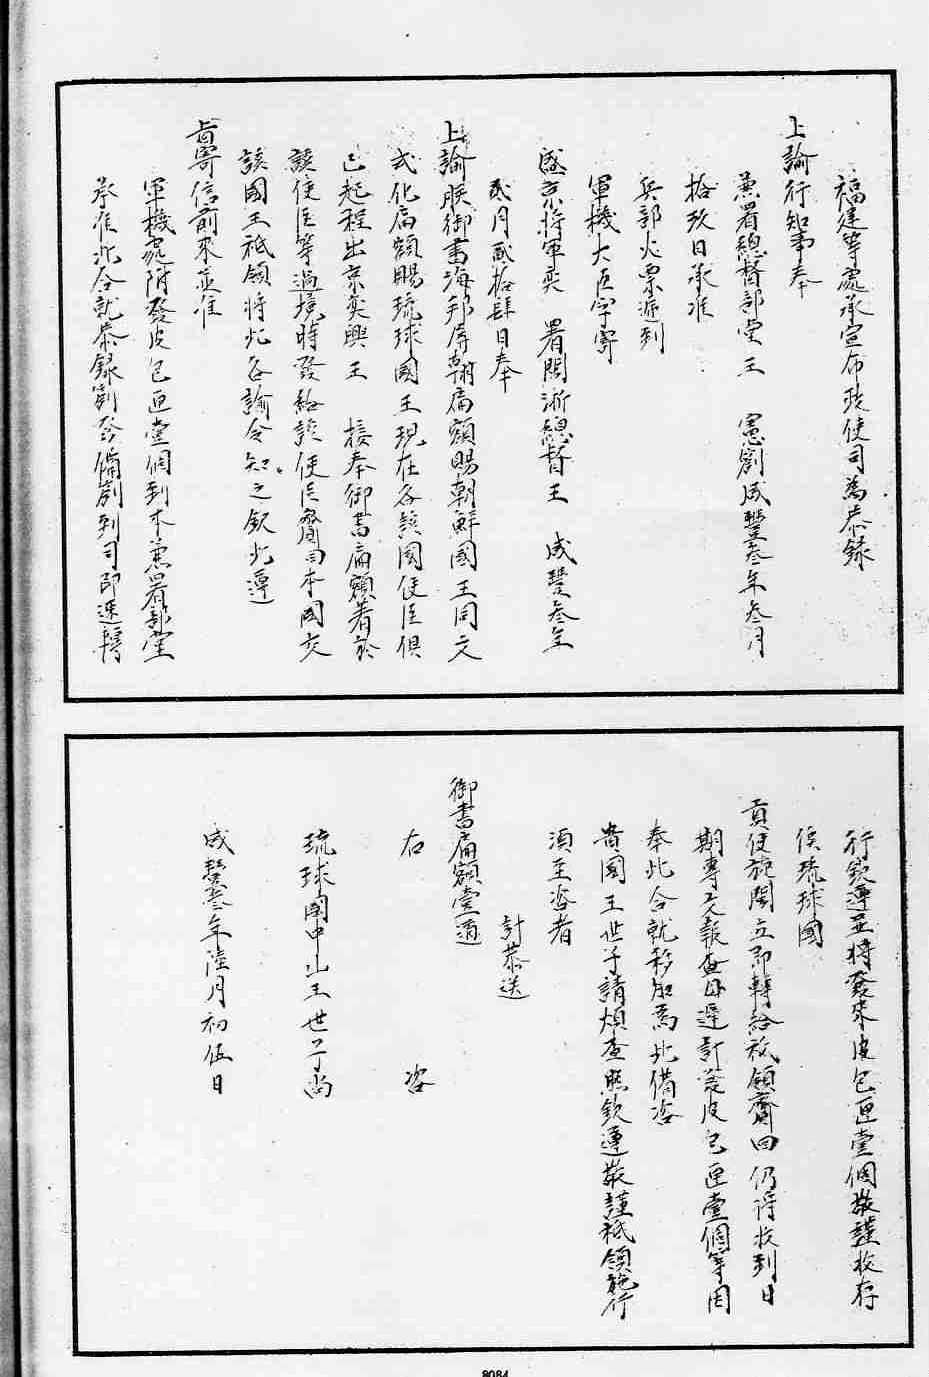 福建等處承宣布政使司為恭錄
上諭行知事奉
兼署總督部堂王　憲劄咸豐叁年叁月
拾玖日承准
兵部火票遞到
軍機大臣字寄
盛京將軍奕　署閩浙總督王　咸豐叁年
貳月貳拾肆日奉
上諭朕御書海邦屏翰扁額賜朝鮮國王同文
式化扁額賜琉球國王現在各該國使臣俱
已起程出京奕興王　接奉御書扁額著於
該使臣等過境時發給該使臣齎回本國交
該國王祗領將此各諭令知之欽此遵
旨寄信前來並准
軍機處附發皮包匣壹個到本兼署部堂
承准此合就恭錄劄發備劄到司即速轉
行欽遵並將發來皮包匣壹個敬謹收存
俟琉球國
貢使旋閩立即轉給祗領齎回仍將收到日
期專文報查毋遲計發皮包匣壹個等因
奉此合就移知為此備咨
貴國王世子請煩查照欽遵敬謹祗領施行
須至咨者
計恭送
御書扁額壹道
右　咨
琉球國中山王世子尚
咸豐叁年陸月初伍日
8084